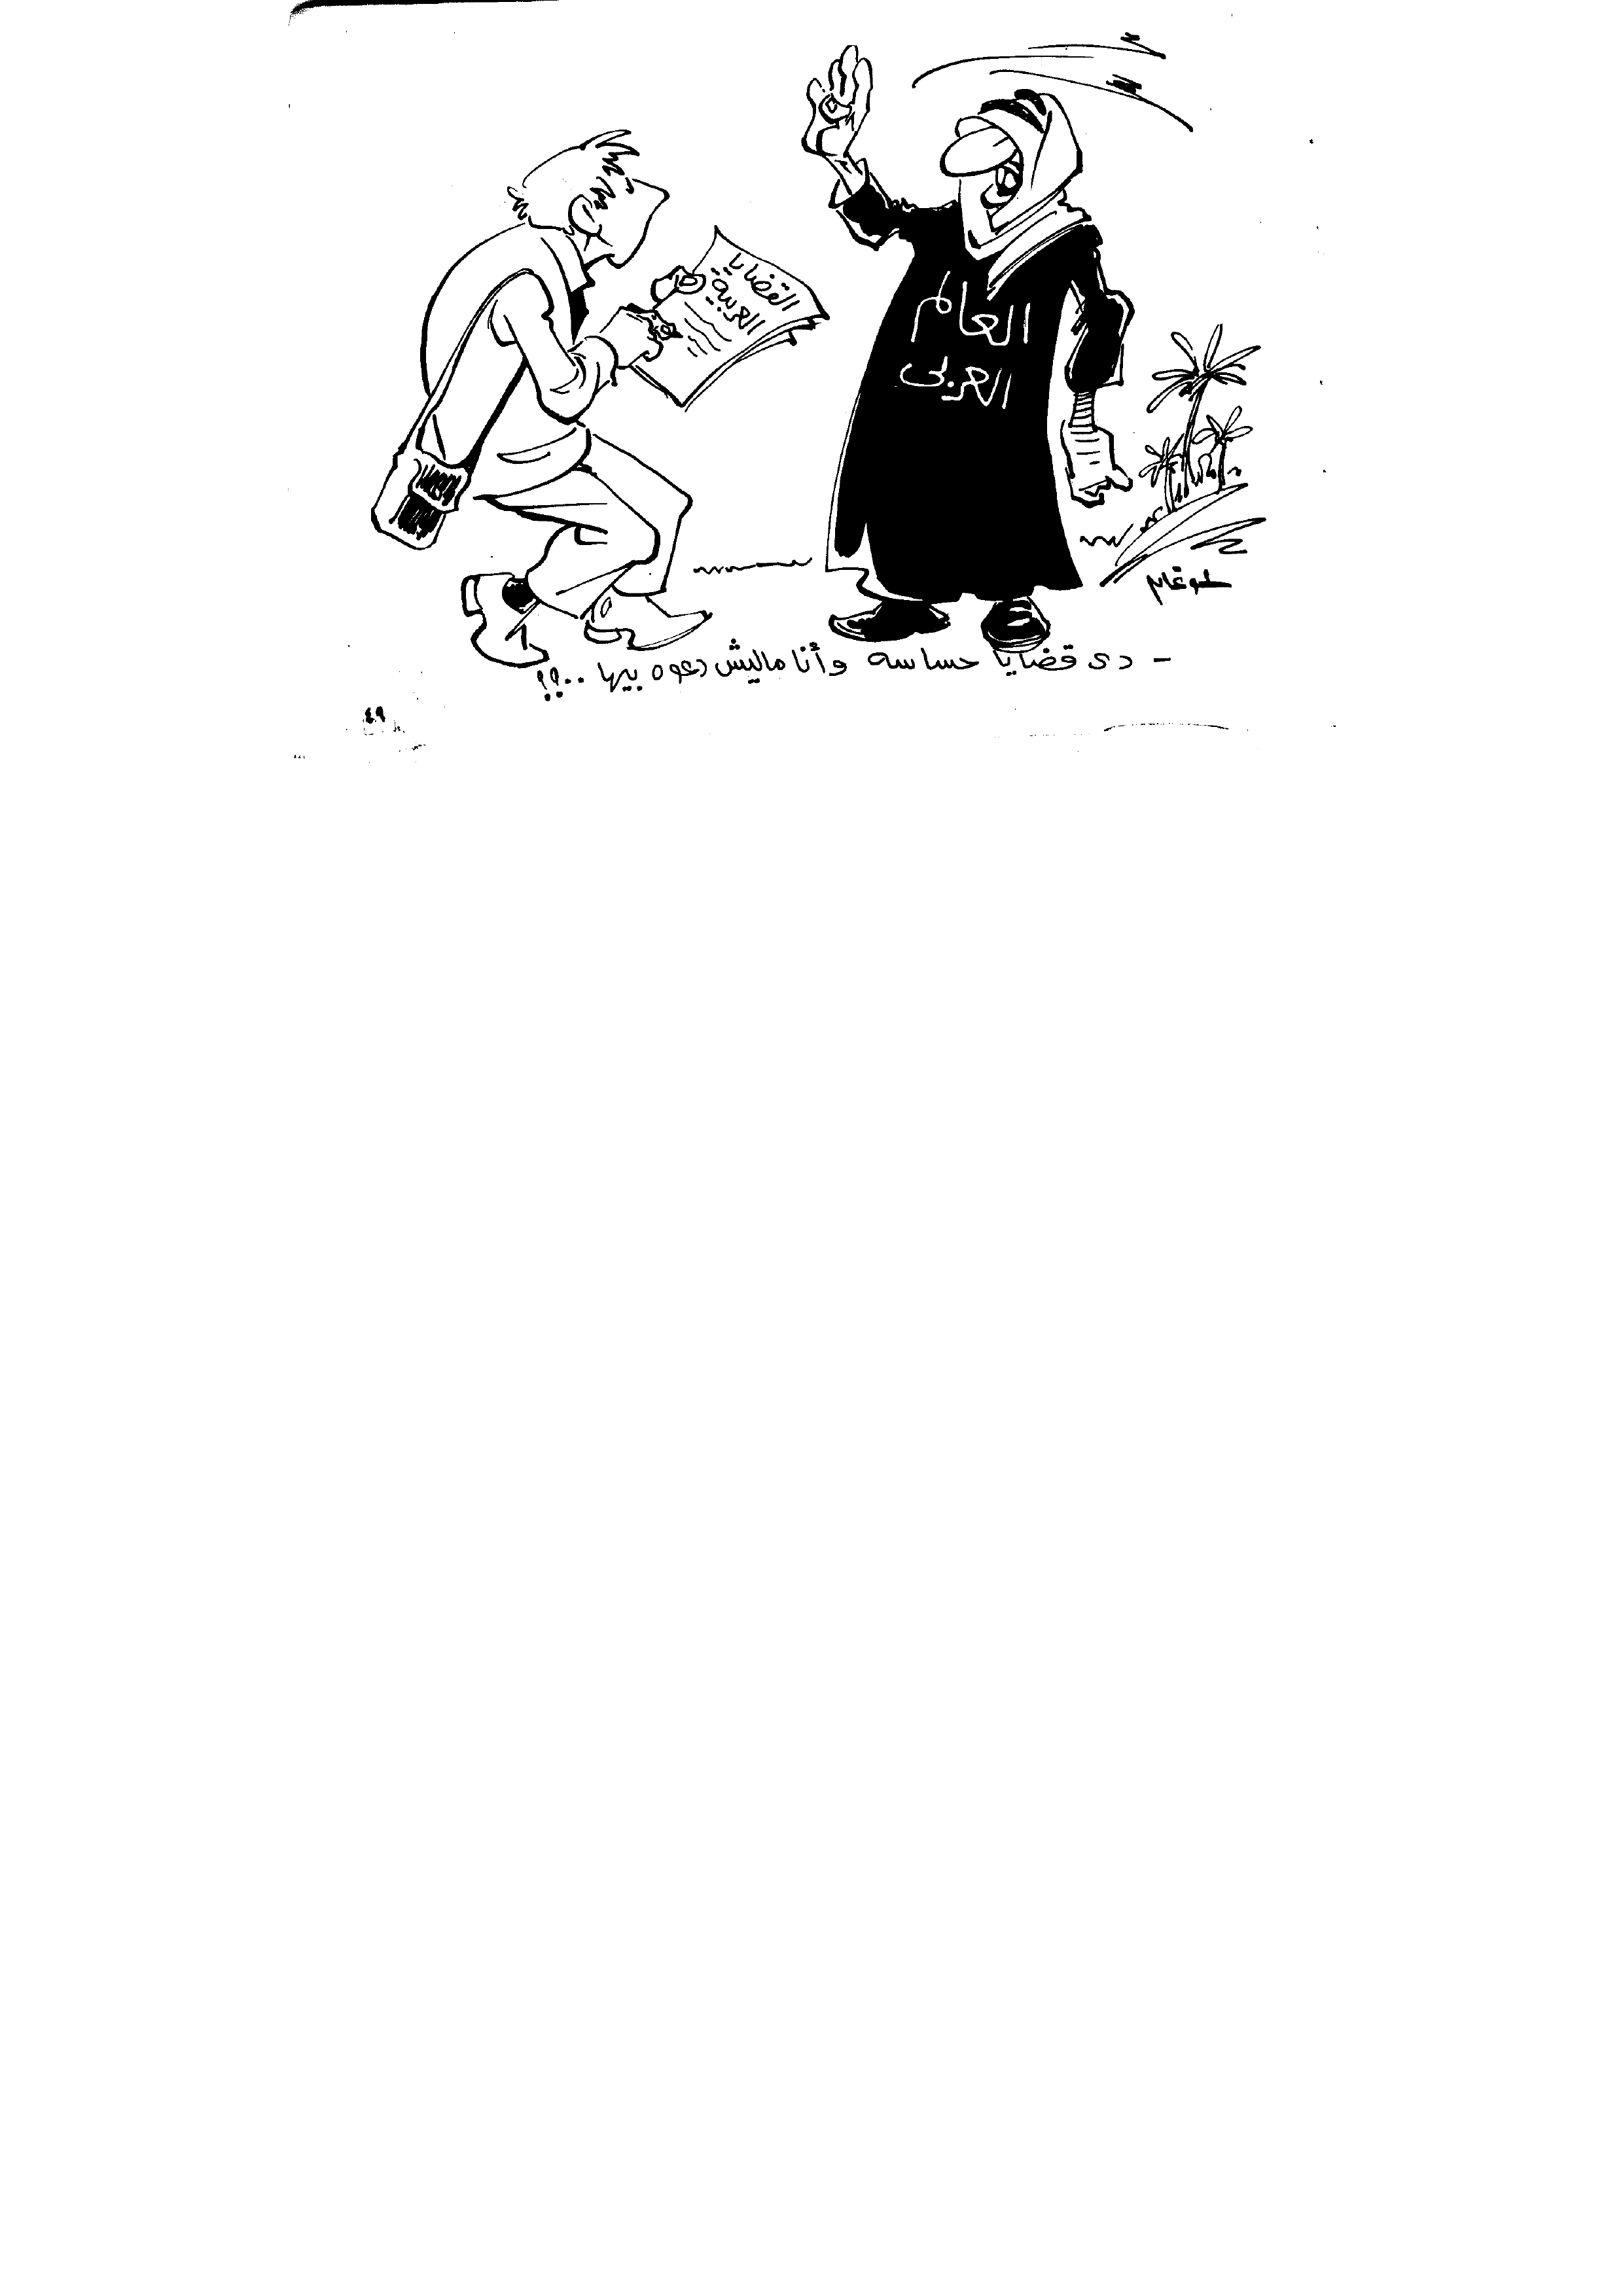 القضايا
العربية
العالم
العربى
- دى قضايا حساسه وأنا ماليش دعوه بيها ..؟؟
٤٩